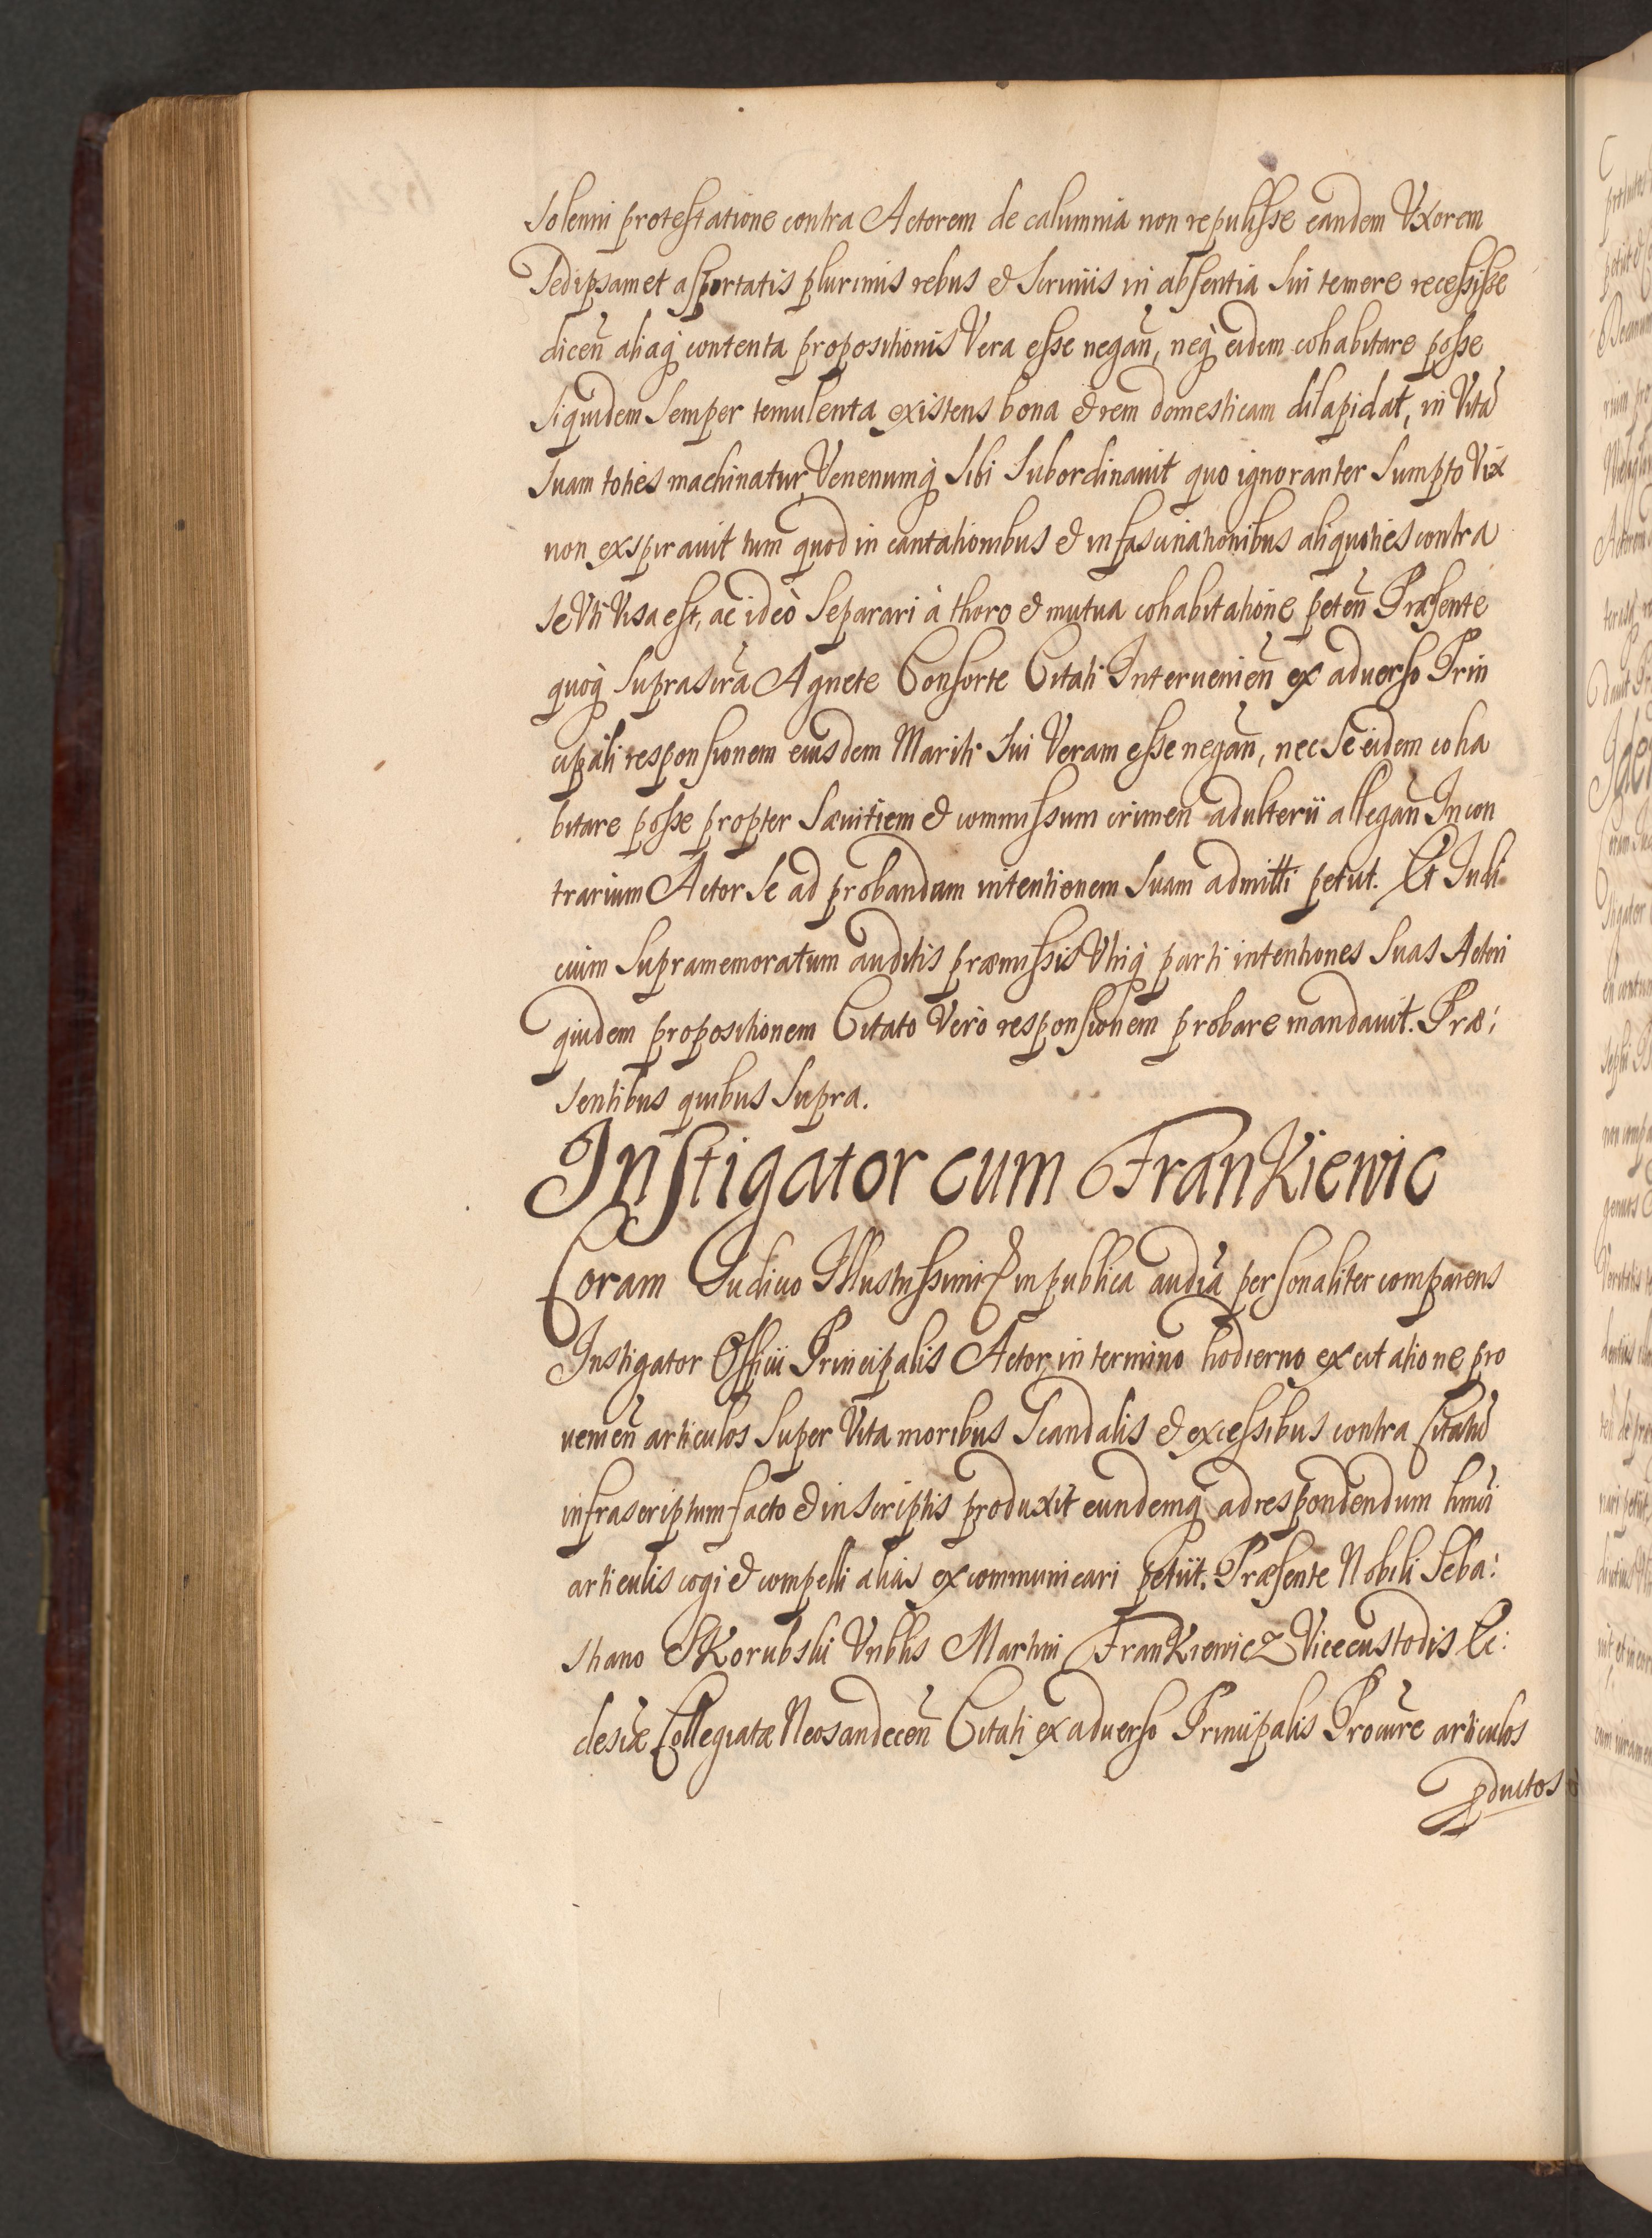 Solenni protestatione contra Actorem de calumnia non repulisse eandem Vxorem
Sed ipsamet asportatis plurimis rebus & Scriniis in absentia Sui temere recessisse
dicen̄ aliaq̀ contenta propositionis Vera esse negan̄, neq̀ eidem cohabitare posse
Siquidem Semper temulenta existens bona & rem domesticam dilapidat, in Vitā
Suam toties machinatur, Venenumq̀ Sibi Subordinauit quo ignoranter Sumpto Vix
non expirauit tum quod in cantationibus & infascinationibus aliquoties contra
Se Vti Visa est, ac ideò Separari à thoro & mutua cohabitatione peten̄ Præsente
quoq̀ Suprascr̄a Agnete Consorte Citati Interuenien̄ ex aduerso Prin
cipali responsionem eiusdem Mariti Sui Veram esse negan̄, nec Se eidem coha
bitare posse propter Sæuitiem & commissum crimen adulterii allegan̄ In con
trarium Actor Se ad probandum intentionem Suam admitti petiit. Et Judi
cium Supramemoratum auditis præmissis Vtriq̀ parti intentiones Suas Actori
quidem propositionem Citato Verò responsionem probare mandauit. Præ:
Sentibus quibus Supra.
Instigator cum Frankiewic
Coram Judicio Illustrissimi & in publica audiā personaliter comparens
Instigator Officii Principalis Actor, in termino hodierno ex citatione pro
uenien̄ articulos Super Vita moribus Scandalis & excessibus contra Citatū
infrascriptum facto & in Scriptis produxit eundemq̀ ad respondendum hmōi
articulis cogi & compelli alias excommunicari petiit. Præsente Nobili Seba:
stiano Skorubski Vnblis Martini Frankiewicz Vicecustodis Ec:
clesiæ Collegiatæ Neosandecen̄ Citati ex aduerso Principalis Procur̄e articulos
pductos